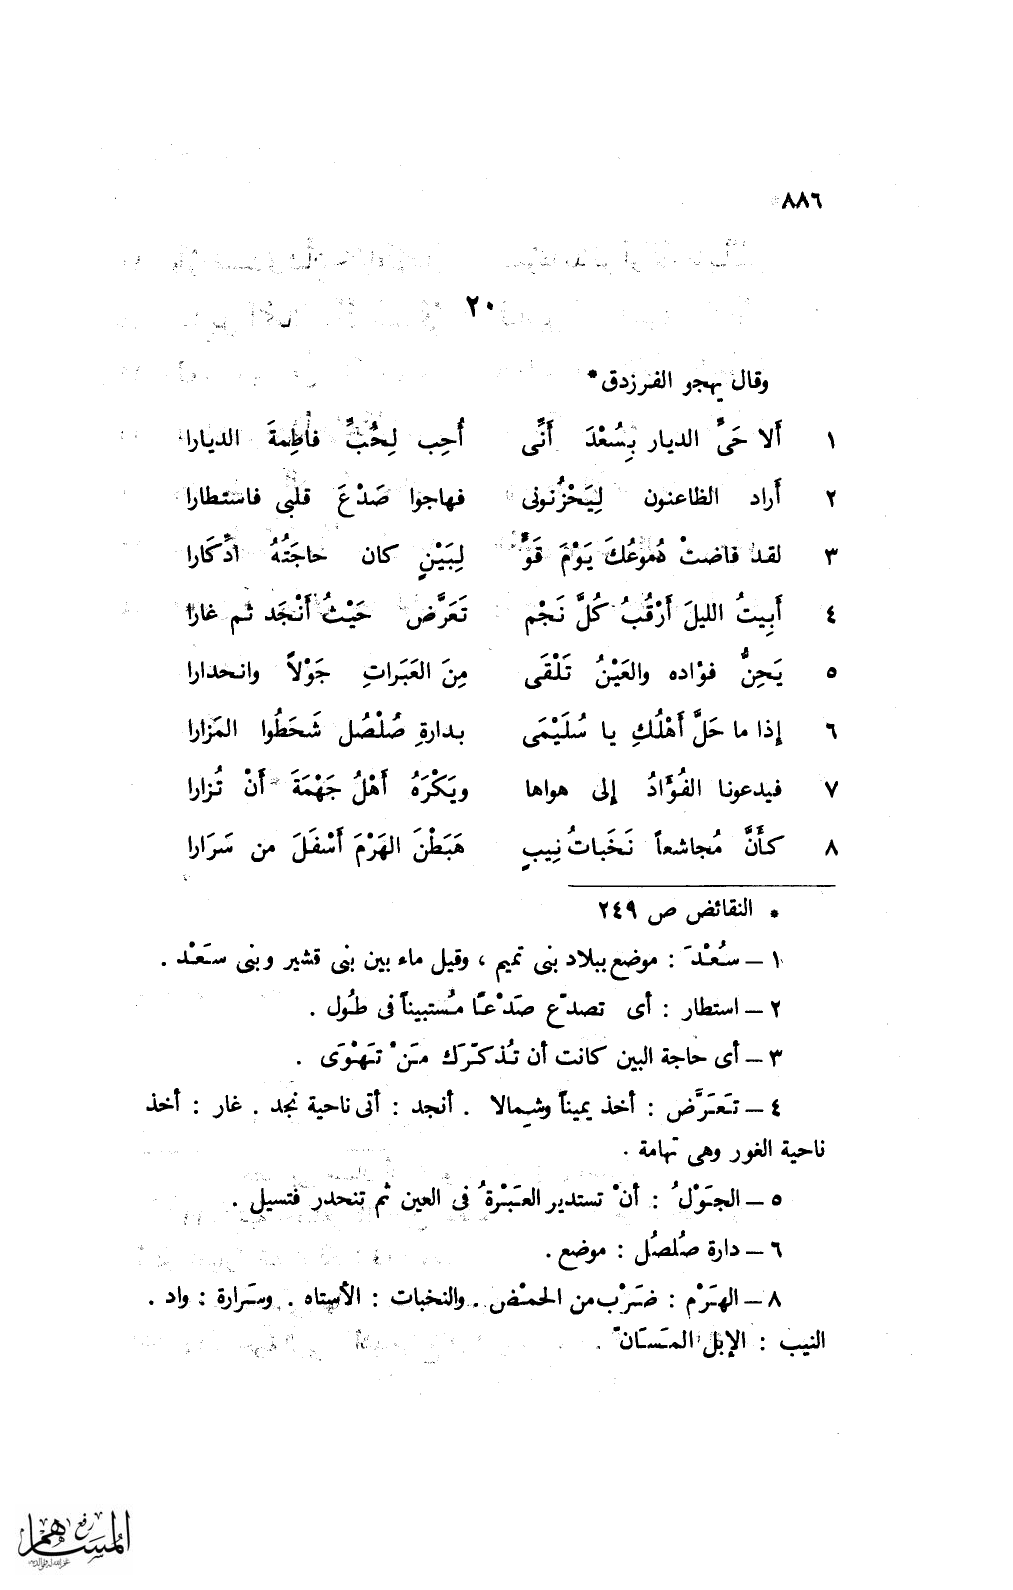 ٨٨٦
٢٠
وقال يهجو الفرزدق*
١ أَلا حَىِّ الديار بِسُعْدَ أَنِّى أُحِب لِحُبِّ فاطِمةَ الديارا
٢ أَراد الظاعنون لِيَحْزُنونى فهاجوا صَدْعَ قلبى فاستطارا
٣ لقد فاضتْ دُموعُكَ يَوْمَ قَوٍّ لِبَيْنٍ كان حاجَتُهُ ادِّكَارا
٤ أَبِيتُ الليلَ أَرْقُبُ كُلَّ نَجْم تَعَرَّض حَيْثُ أَنْجَد ثم غارا
٥ يَحِنُّ فؤاده والعَيْنُ تَلْقَى مِنَ العَبَراتِ جَوْلاً وانحدارا
٦ إِذا ما حَلَّ أَهْلُكِ يا سُلَيْمَى بدارةِ صُلْصُل شَحَطُوا المَزارا
٧ فيدعونا الفُؤَادُ إِلى هواها ويَكْرَهُ أَهْلُ جَهْمَةَ أَنْ تُزارا
٨ كأَنَّ مُجاشعاً نَخَباتُ نِيبٍ هَبَطْنَ الهَرْمَ أَسْفَلَ من سَرَارا
* النقائض ص ٢٤٩
١ – سُعْدَ : موضع ببلاد بنى تميم ، وقيل ماء بين بنى قشير وبنى سَعْد .
٢ – استطار : أى تصدّع صَدْعًا مُستبيناً فى طُول .
٣ – أى حاجة البين كانت أن تُذكّرَك مَنْ تَهْوَى .
٤ – تَعَرَّض : أخذ يميناً وشمالا . أنجد : أتى ناحية نجد . غار : أخذ
ناحية الغور وهى تهامة .
٥ – الجَوْلُ : أنْ تستدير العَبْرةُ فى العين ثم تنحدر فتسيل .
٦ – دارة صُلصُل : موضع .
٨ – الهَرْم : ضَرْب من الحمْض . والنخبات : الأستاه . وسَرارة : واد .
النيب : الإبل المَسَانّ .
رفع
المساهم